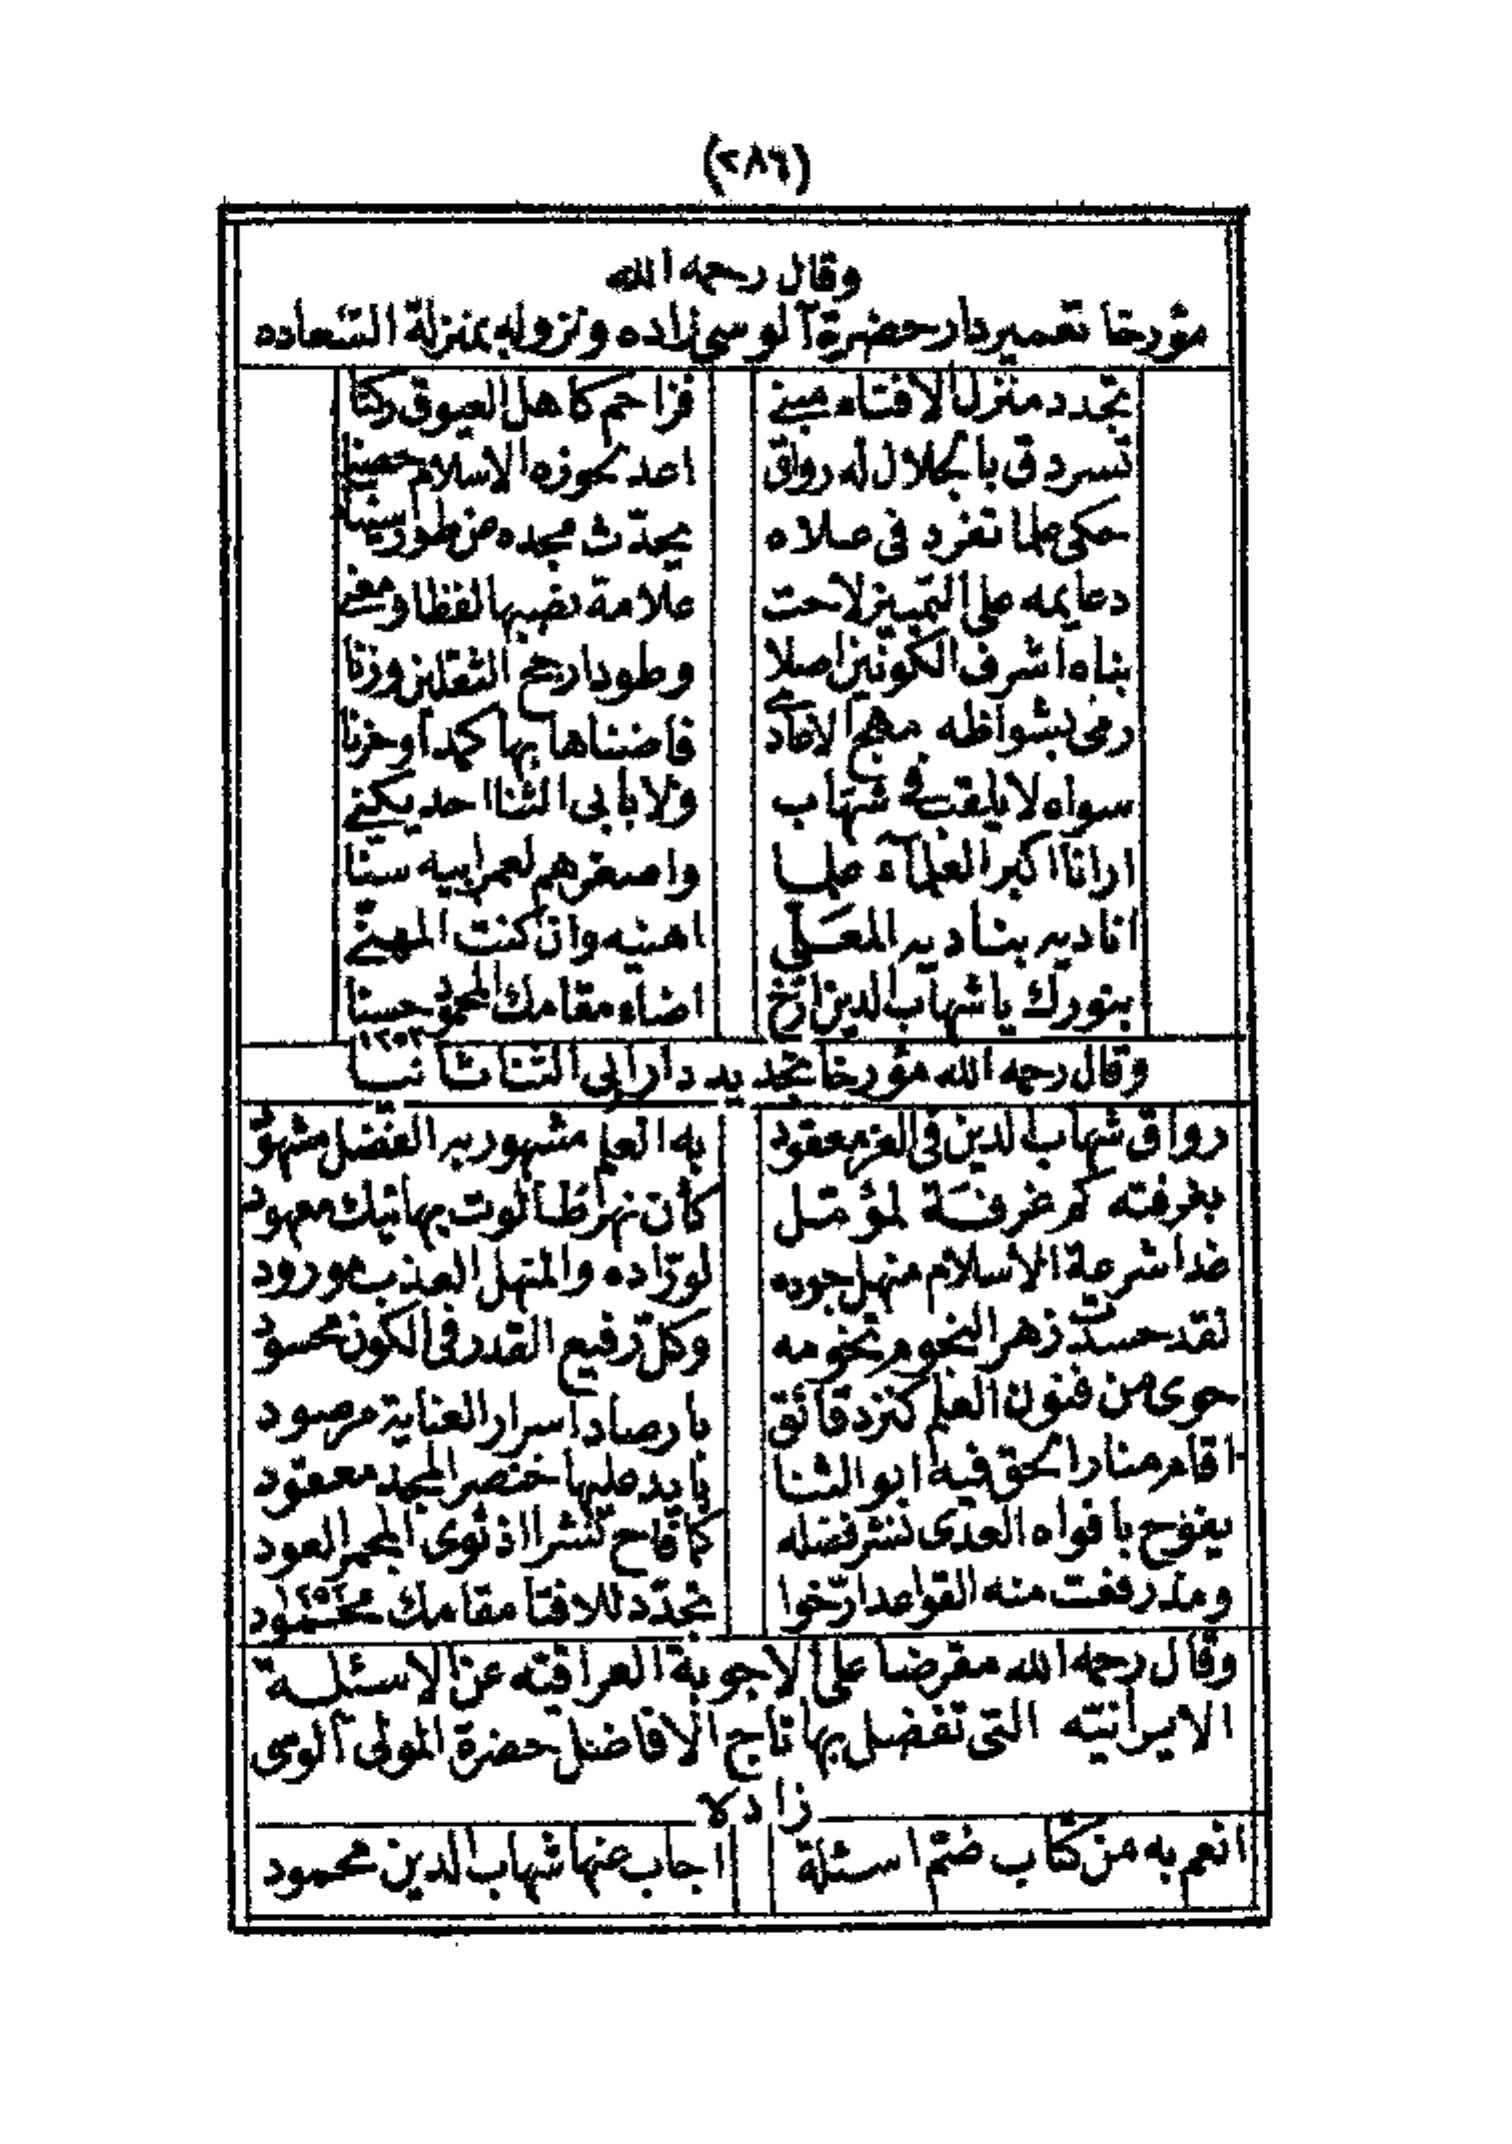 (٢٨٦)
وقال رحمه الله
مؤرخا تعمير دار حضرة آلوسي زاده ونزوله بمنزلة السعاده
تجدد منزل الافتاء مبنى فزاحم كاهل العيوق ركنا
تسردق بالجلال له رواق اعد لحوزه الاسلام حصنا
حكى علما تفرد فى علاه يحدّث مجده عن طور سينا
دعايمه على التمييز لاحت علامة نصبها لفظا ومعنى
بناه اشرف الكونين اصلا وطود ارجح الثقلين وزنا
رمى بشواظه مهج الاعادي فاضناها بها كمدا وحزنا
سواه لا يلقب فى شهاب ولا بابى الثنا احد يكنى
ارانا اكبر العلمآء علما واصغرهم لعمر ابيه سنّا
اناديه بناديه المعلّى اهنيه وان كنت المهنّى
بنورك يا شهاب الدين ارّخ اضاء مقامك المحمود حسنا
١٢٥٣
وقال رحمه الله مؤرخا تجديد دار ابى الثنا ثانيا
رواق شهاب الدين فى العز معقود به العلم مشهور به الفضل مشهود
بغرفته كم غرفة لمؤمّل كأن نهر طالوت بها تيك معهود
غدا شرعة الأسلام منهل جوده لورّاده والمنهل العذب مورود
لقد حسدت زهر النجوم تخومه وكلّ رفيع القدر فى الكون محسود
حوى من فنون العلم كنز دقائق بارصاد اسرار العناية مرصود
اقام منار الحق فيه ابو الثنا بايد عليها خنصر المجد معقود
يفوح بافواه العدى نشر فضله كما فاح نشرا اذ ثوى المجمر العود
ومذ رفعت منه القواعد ارّخوا تجدّد للافتا مقامك محمود
١٢٥٢
وقال رحمه الله مقرضا على الاجوبة العراقيّه عن الاسئلة
الايرانيّه التى تفضل بها تاج الافاضل حضرة المولى آلوسى
زاده
انعم به من كتاب ضمّ اسئلة اجاب عنها شهاب الدين محمود